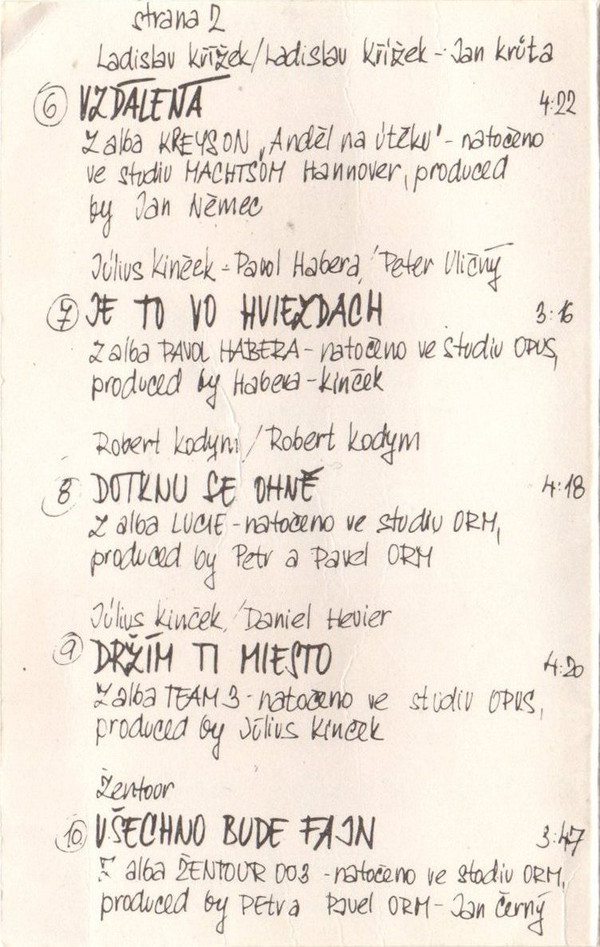 strana 2
Ladislav Křížek/Ladislav Křížek - Jan Krůta
6 VZDÁLENÁ 4:22
Z alba KREYSON „Anděl na útěku" - natočeno
ve studiu MACHTSUM Hannover, produced
by Jan Němec
Július Kinček - Pavol Habera / Peter Uličný
7 JE TO VO HVIEZDACH 3:16
Z alba PAVOL HABERA - natočeno ve studiu OPUS,
produced by Habera - Kinček
Robert Kodym / Robert Kodym
8 DOTKNU SE OHNĚ 4:18
Z alba LUCIE - natočeno ve studiu ORM,
produced by Petr a Pavel ORM
Július Kinček / Daniel Hevier
9 DRŽÍM TI MIESTO 4:20
Z alba TEAM 3 - natočeno ve studiu OPUS,
produced by Július Kinček
Žentour
10 VŠECHNO BUDE FAJN 3:47
Z alba ŽENTOUR 003 - natočeno ve studiu ORM,
produced by PEtr a Pavel ORM - Jan Černý